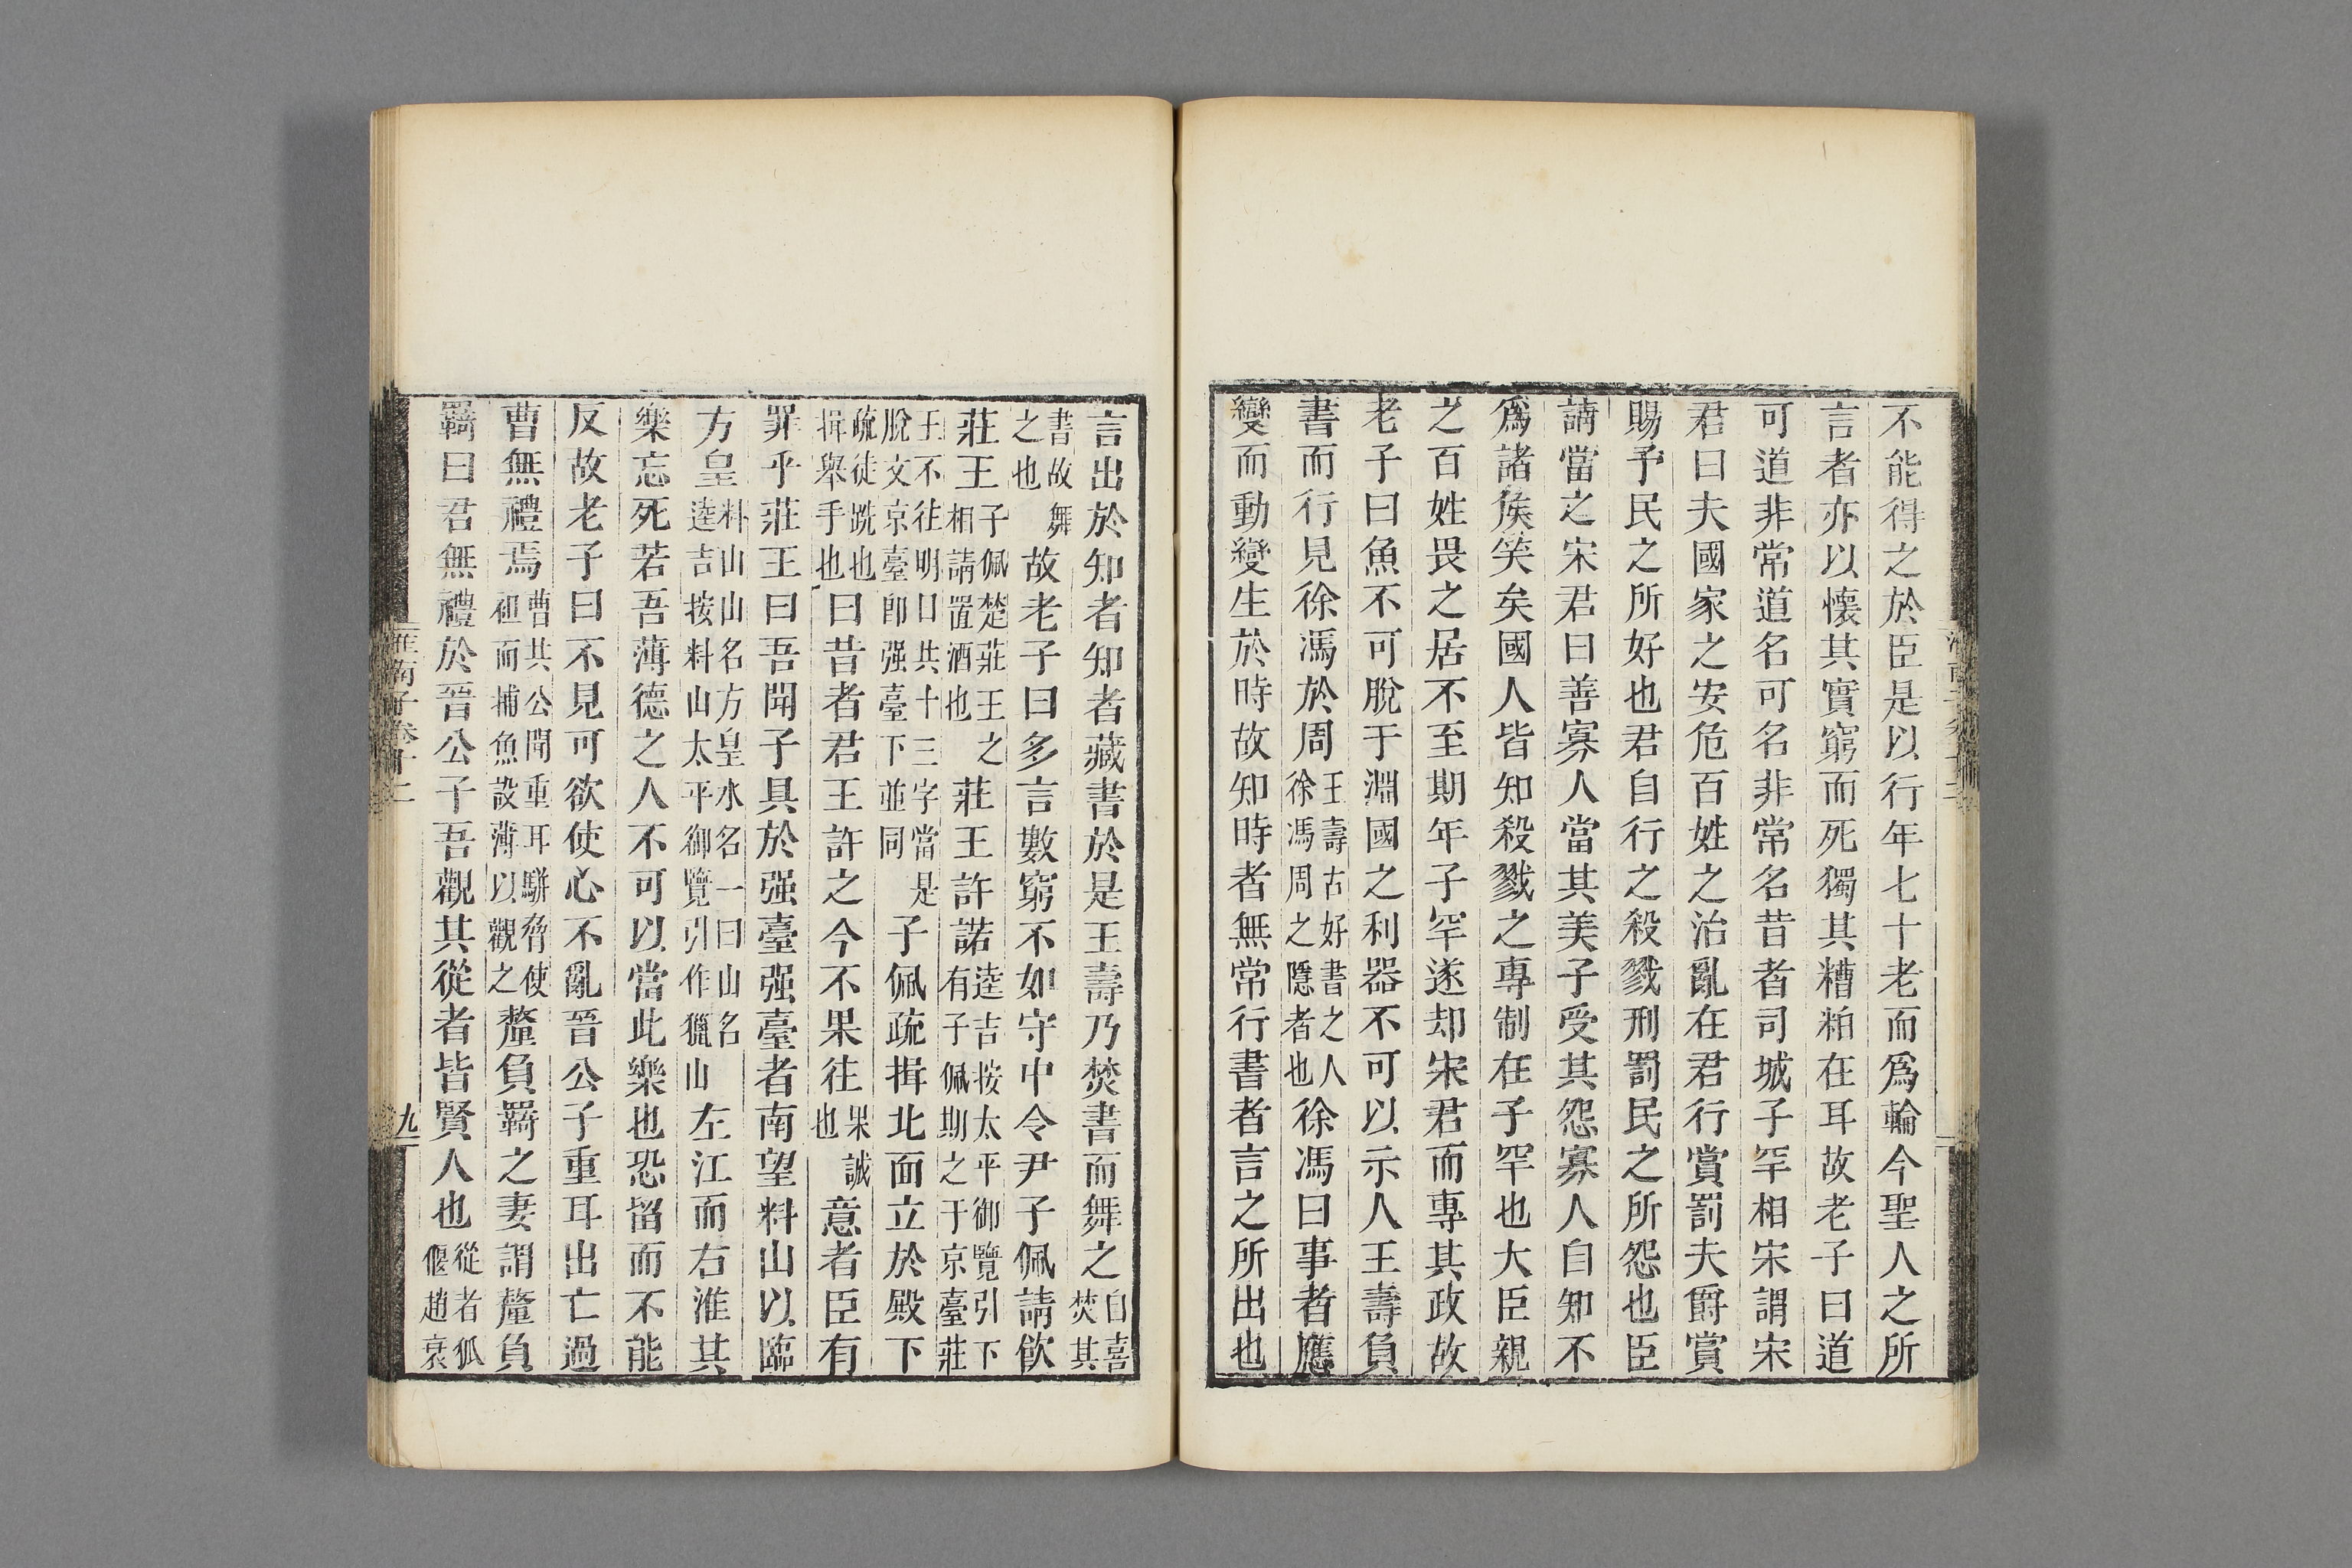 不能得之於臣是以行年七十老而爲輪今聖人之所
言者亦以懷其實窮而死獨其糟粕在耳故老子曰道
可道非常道名可名非常名昔者司城子罕相宋謂宋
君曰夫國家之安危百姓之治亂在君行賞罰夫爵賞
賜予民之所好也君自行之殺戮刑罰民之所怨也臣
請當之宋君曰善寡人當其美子受其怨寡人自知不
爲諸矦笑矣國人皆知殺戮之專制在子罕也大臣親
之百姓畏之居不至期年子罕遂却宋君而專其政故
老子曰魚不可脫于淵國之利器不可以示人王壽負
書而行見徐馮於周王壽古好書之人徐馮周之隱者也徐馮曰事者應
變而動變生於時故知時者無常行書者言之所出也
言出於知者知者藏書於是王壽乃焚書而舞之自喜焚其
書故舞之也故老子曰多言數窮不如守中令尹子佩請飲
莊王子佩楚莊王之相請置酒也莊王許諾逵吉按太平御覽引下有子佩期之于京臺莊
王不往明日共十三字當是脫文京臺卽强臺下並同子佩疏揖北面立於殿下
疏徒跣也揖舉手也曰昔者君王許之今不果往果誠也意者臣有
罪乎莊王曰吾聞子具於强臺强臺者南望料山以臨
方皇料山山名方皇水名一曰山名逵吉按料山太平御覽引作獵山左江而右淮其
樂忘死若吾薄德之人不可以當此樂也恐留而不能
反故老子曰不見可欲使心不亂晉公子重耳出亡過
曹無禮焉曹共公聞重耳駢脅使袒而捕魚設薄以觀之釐負羈之妻謂釐負
羈曰君無禮於晉公子吾觀其從者皆賢人也從者狐偃趙衰
淮南子卷十二
九